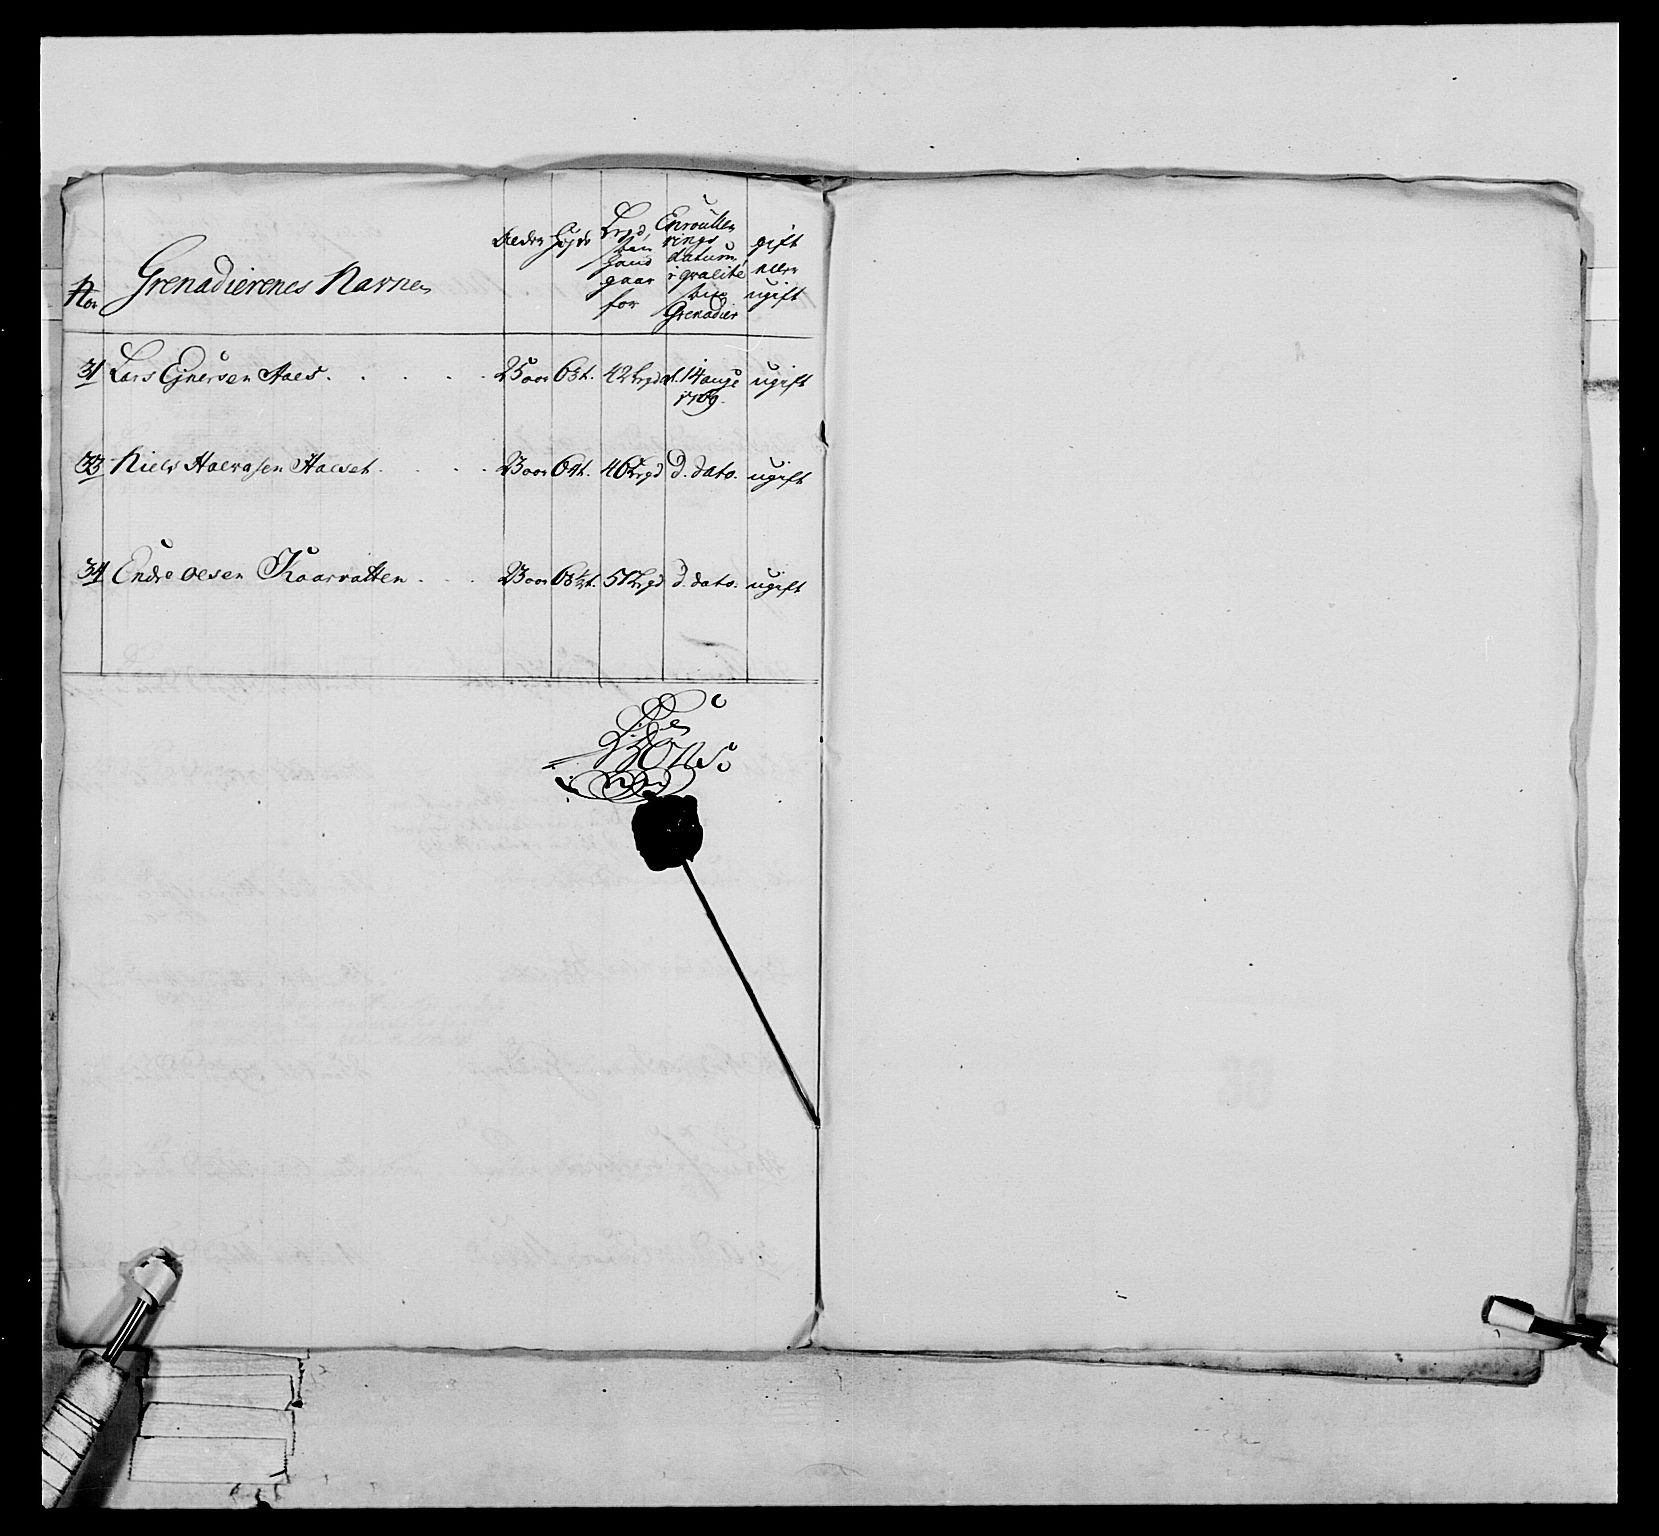 No: Grenadierenes Navne
Alder
Høyde
Lægd, som hand gaar for
Enroullerings datum, i qvalite som Grenadier
gift eller ugift
31 Lars Ejnersen Aaes . . . . . 25 aar 63 t. 42 Lægd d. 14 aug: 1769. ugift
33 Niels Halvorsen Halset . . . 23 aar 64 t. 46 Lægd d. dato. ugift
34 Endre Olsen Kaarvatten . . . 23 aar 63 1/2 t. 57 Lægd d. dato. ugift